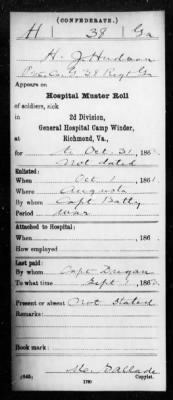 (CONFEDERATE.)
H 38 Ga
H. J. Hudman
Pvt. Co. G. 38 Regt. Ga
Appears on
Hospital Muster Roll
of soldiers, sick in
2d Division,
General Hospital Camp Winder,
at
Richmond, Va.,
for to Oct. 31, 186
Not dated
Enlisted:
When Oct 1, 1861
Where Augusta
By whom Capt Battey
Period War
Attached to Hospital:
When , 186
How employed
Last paid:
By whom Capt
To what time Sept 1, 186
Present or absent Not Stated
Remarks:
Book mark:
Copyist.